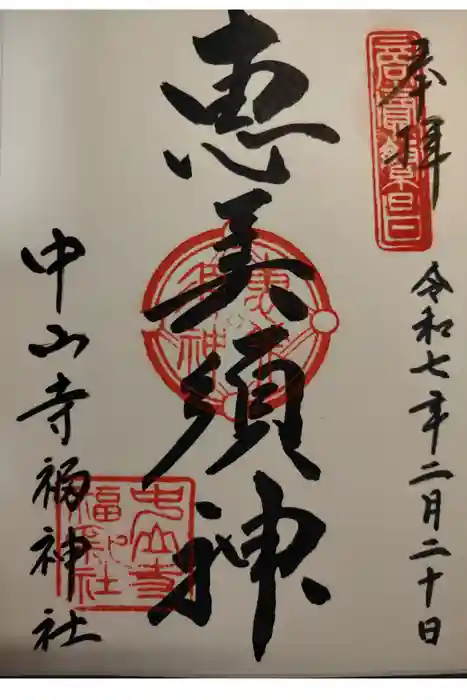 奉拝
商賣繁昌
令和七年二月二十日
恵美須神
中山寺福神社
中山寺
福神社